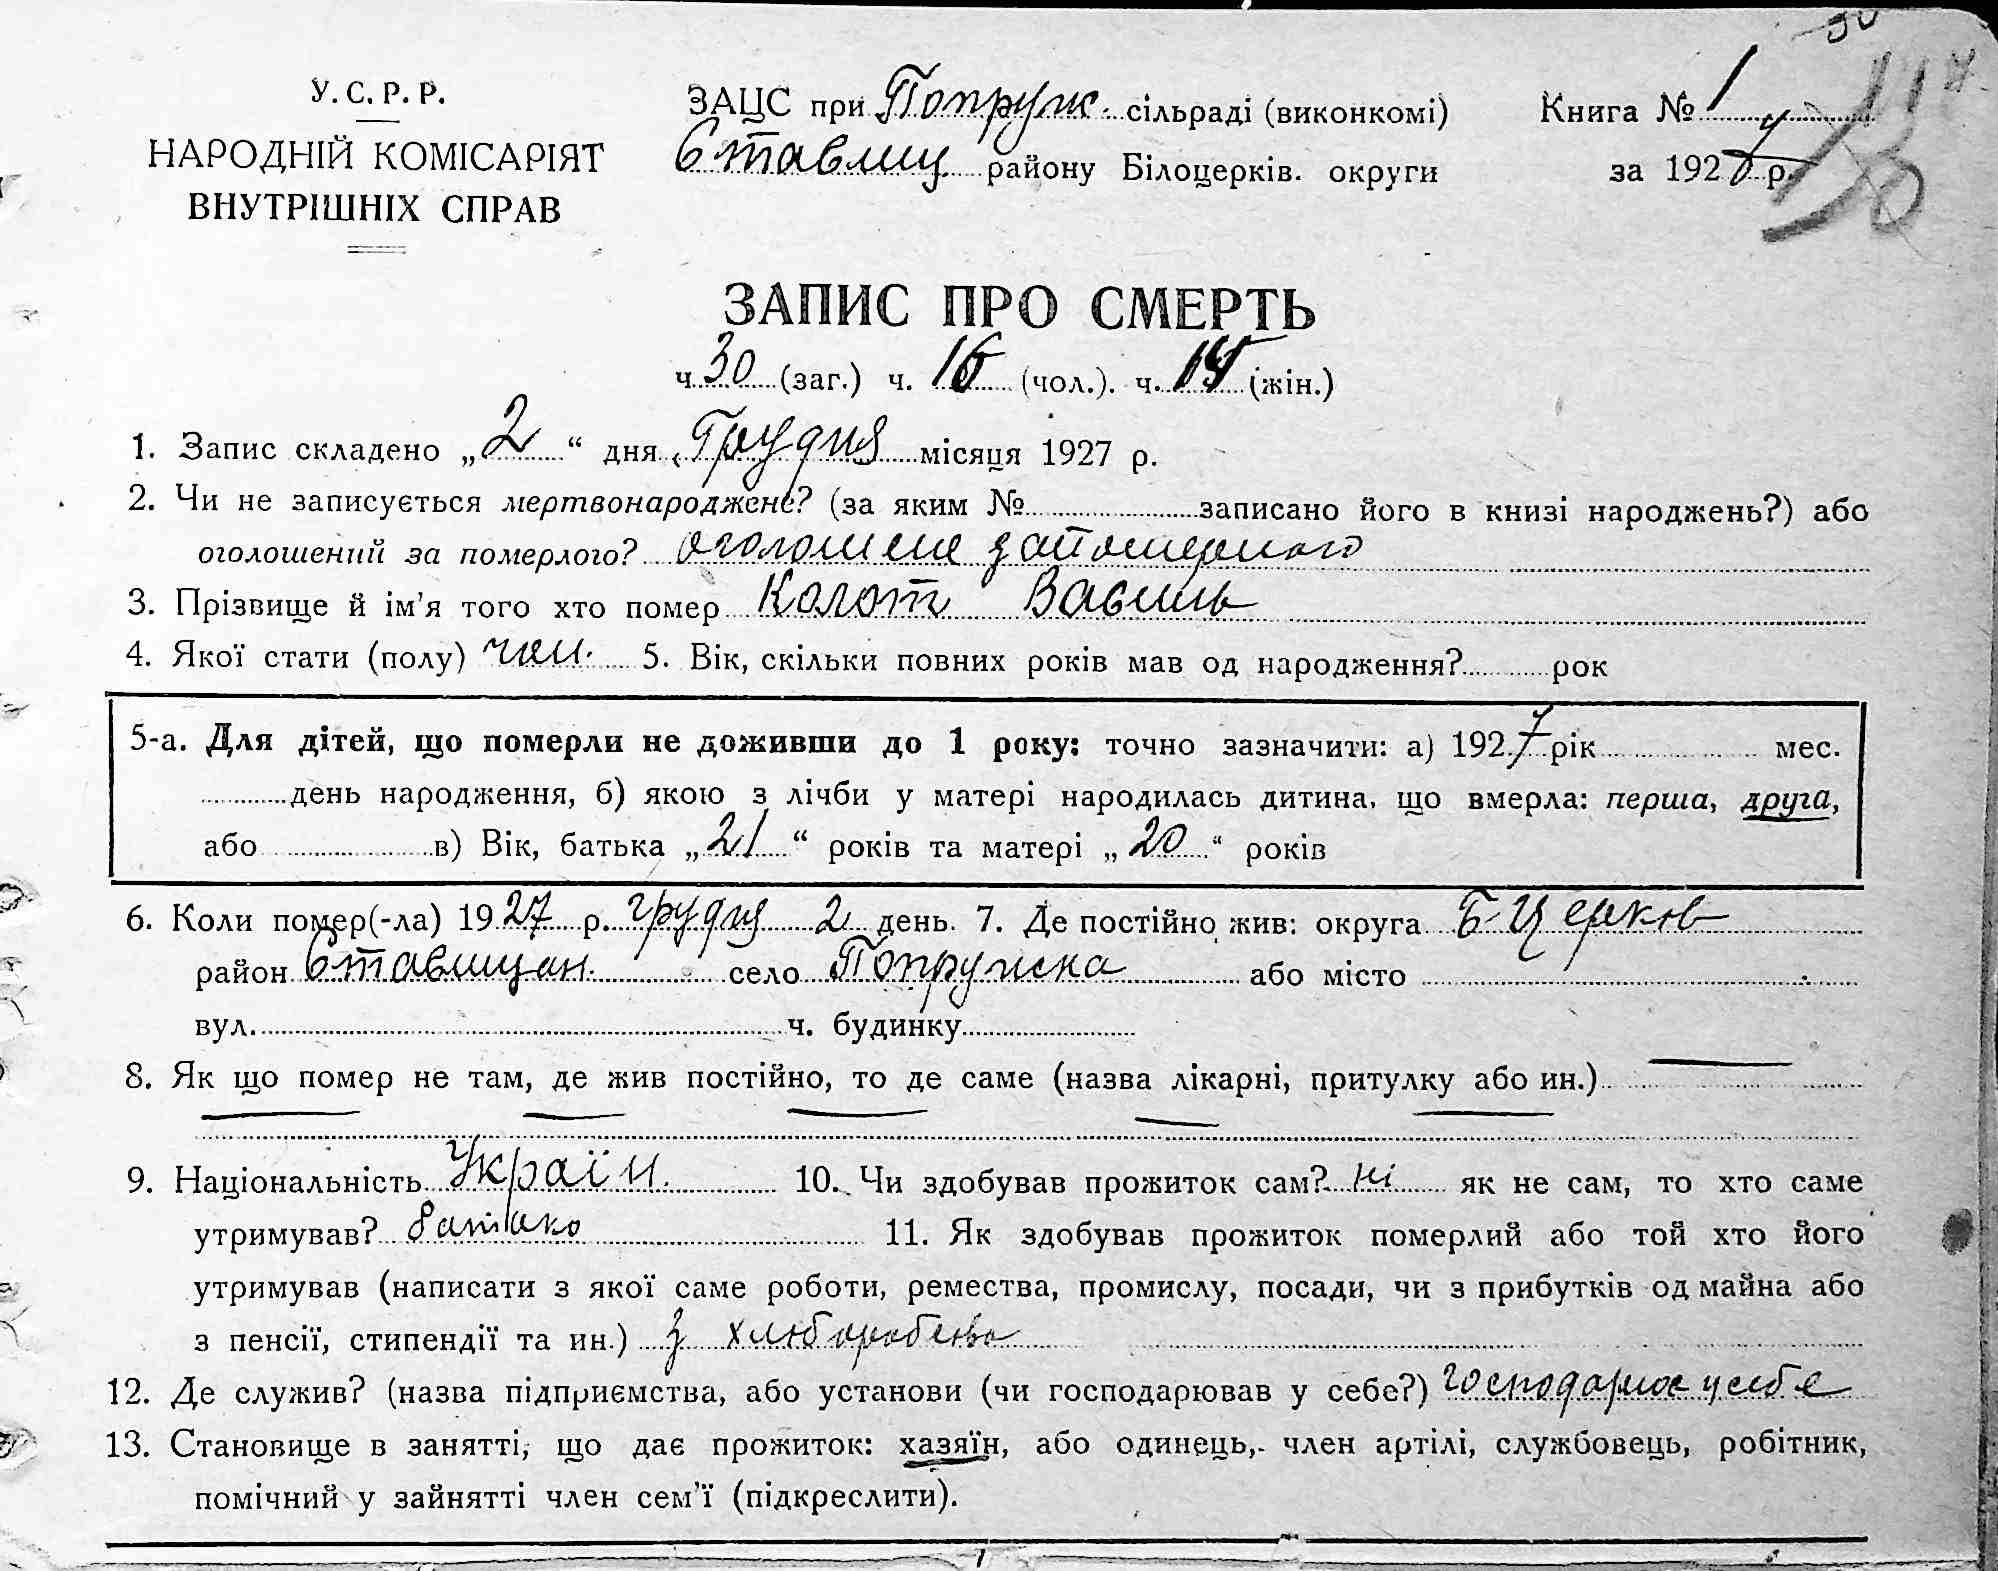 У. С. Р. Р.
НАРОДНІЙ КОМІСАРІЯТ
ВНУТРІШНІХ СПРАВ
ЗАЦС при Попруж. сільраді (виконкомі)
Ставищ. району Білоцерків. округи
Книга № 1
за 1927 р.
ЗАПИС ПРО СМЕРТЬ
ч. 30 (заг.) ч. 16 (чол.). ч. 14 (жін.)
1. Запис складено „2“ дня Грудня місяця 1927 р.
2. Чи не записується мертвонароджене? (за яким № записано його в книзі народжень?) або
оголошений за померлого? оголошене за померлого
3. Прізвище й ім’я того хто помер Колот Василь
4. Якої стати (полу) чол. 5. Вік, скільки повних років мав од народження? рок
5-а. Для дітей, що померли не доживши до 1 року: точно зазначити: а) 1927 рік мес.
день народження, б) якою з лічби у матері народилась дитина, що вмерла: перша, друга,
або в) Вік, батька „21“ років та матері „20“ років
6. Коли помер(-ла) 1927 р. грудня 2 день. 7. Де постійно жив: округа Б-Церков
район Ставищан. село Попружна або місто
вул. ч. будинку
8. Як що помер не там, де жив постійно, то де саме (назва лікарні, притулку або ин.)
9. Національність Україн. 10. Чи здобував прожиток сам? ні як не сам, то хто саме
утримував? батько 11. Як здобував прожиток померлий або той хто його
утримував (написати з якої саме роботи, ремества, промислу, посади, чи з прибутків од майна або
з пенсії, стипендії та ин.) з хлібаробства
12. Де служив? (назва підприємства, або установи (чи господарював у себе?) господарює у себе
13. Становище в занятті, що дає прожиток: хазяїн, або одинець, член артілі, службовець, робітник,
помічний у зайнятті член сем’ї (підкреслити).